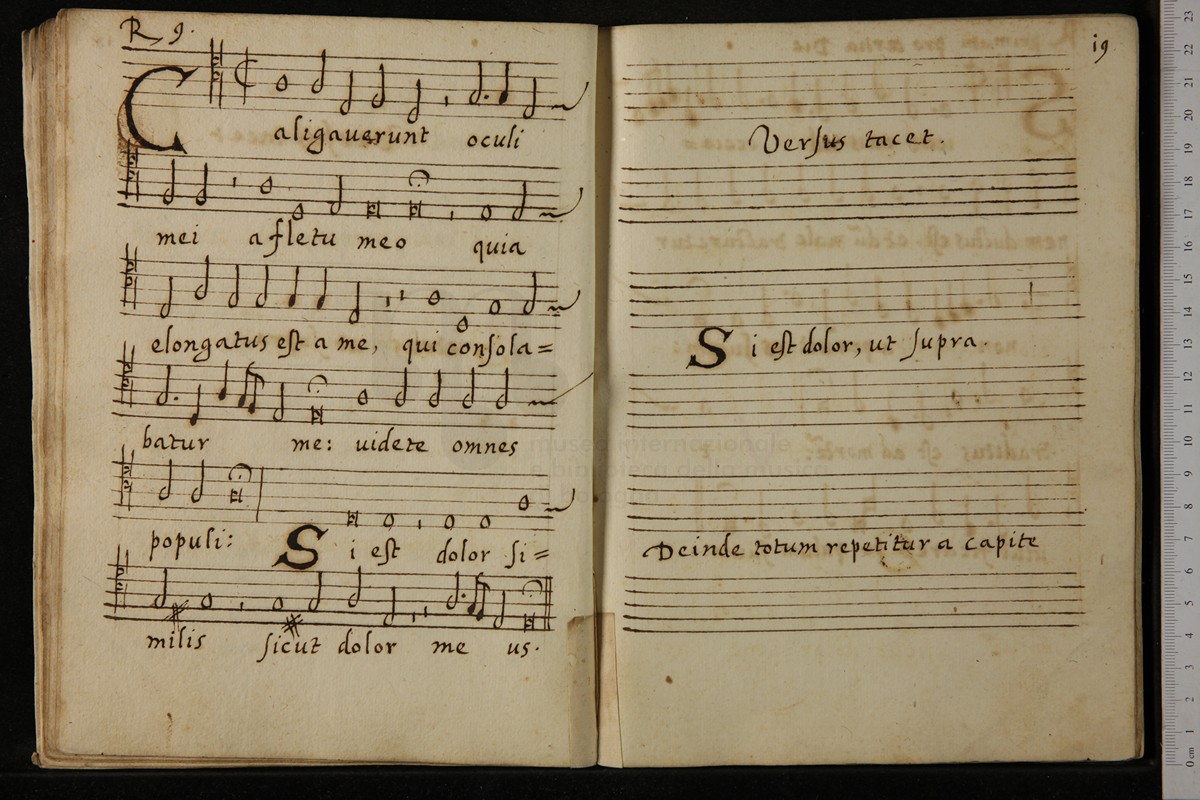 R 9.
Caligauerunt oculi
mei a fletu meo quia
elongatus est a me, qui consola=
batur me: uidete omnes
populi: Si est dolor si=
milis sicut dolor me us.
19
Versus tacet.
Si est dolor, ut supra.
Deinde totum repetitur a capite
museo internazionale
e biblioteca della musica
di bologna